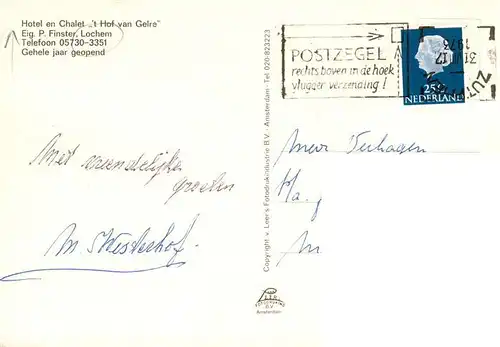 Hotel en Chalet „'t Hof van Gelre"
Eig. P. Finster, Lochem
Telefoon 05730-3351
Gehele jaar geopend
POSTZEGEL
rechts boven in de hoek
vlugger verzending!
31 VII 17
1973
ZUT
25c
NEDERLAND
Met vriendelijke
groeten
M. Westerhof.
Mevr Verhagen
Copyright v. Leer's Fotodrukindustrie B.V. Amsterdam-Tel 020-823223
Amsterdam